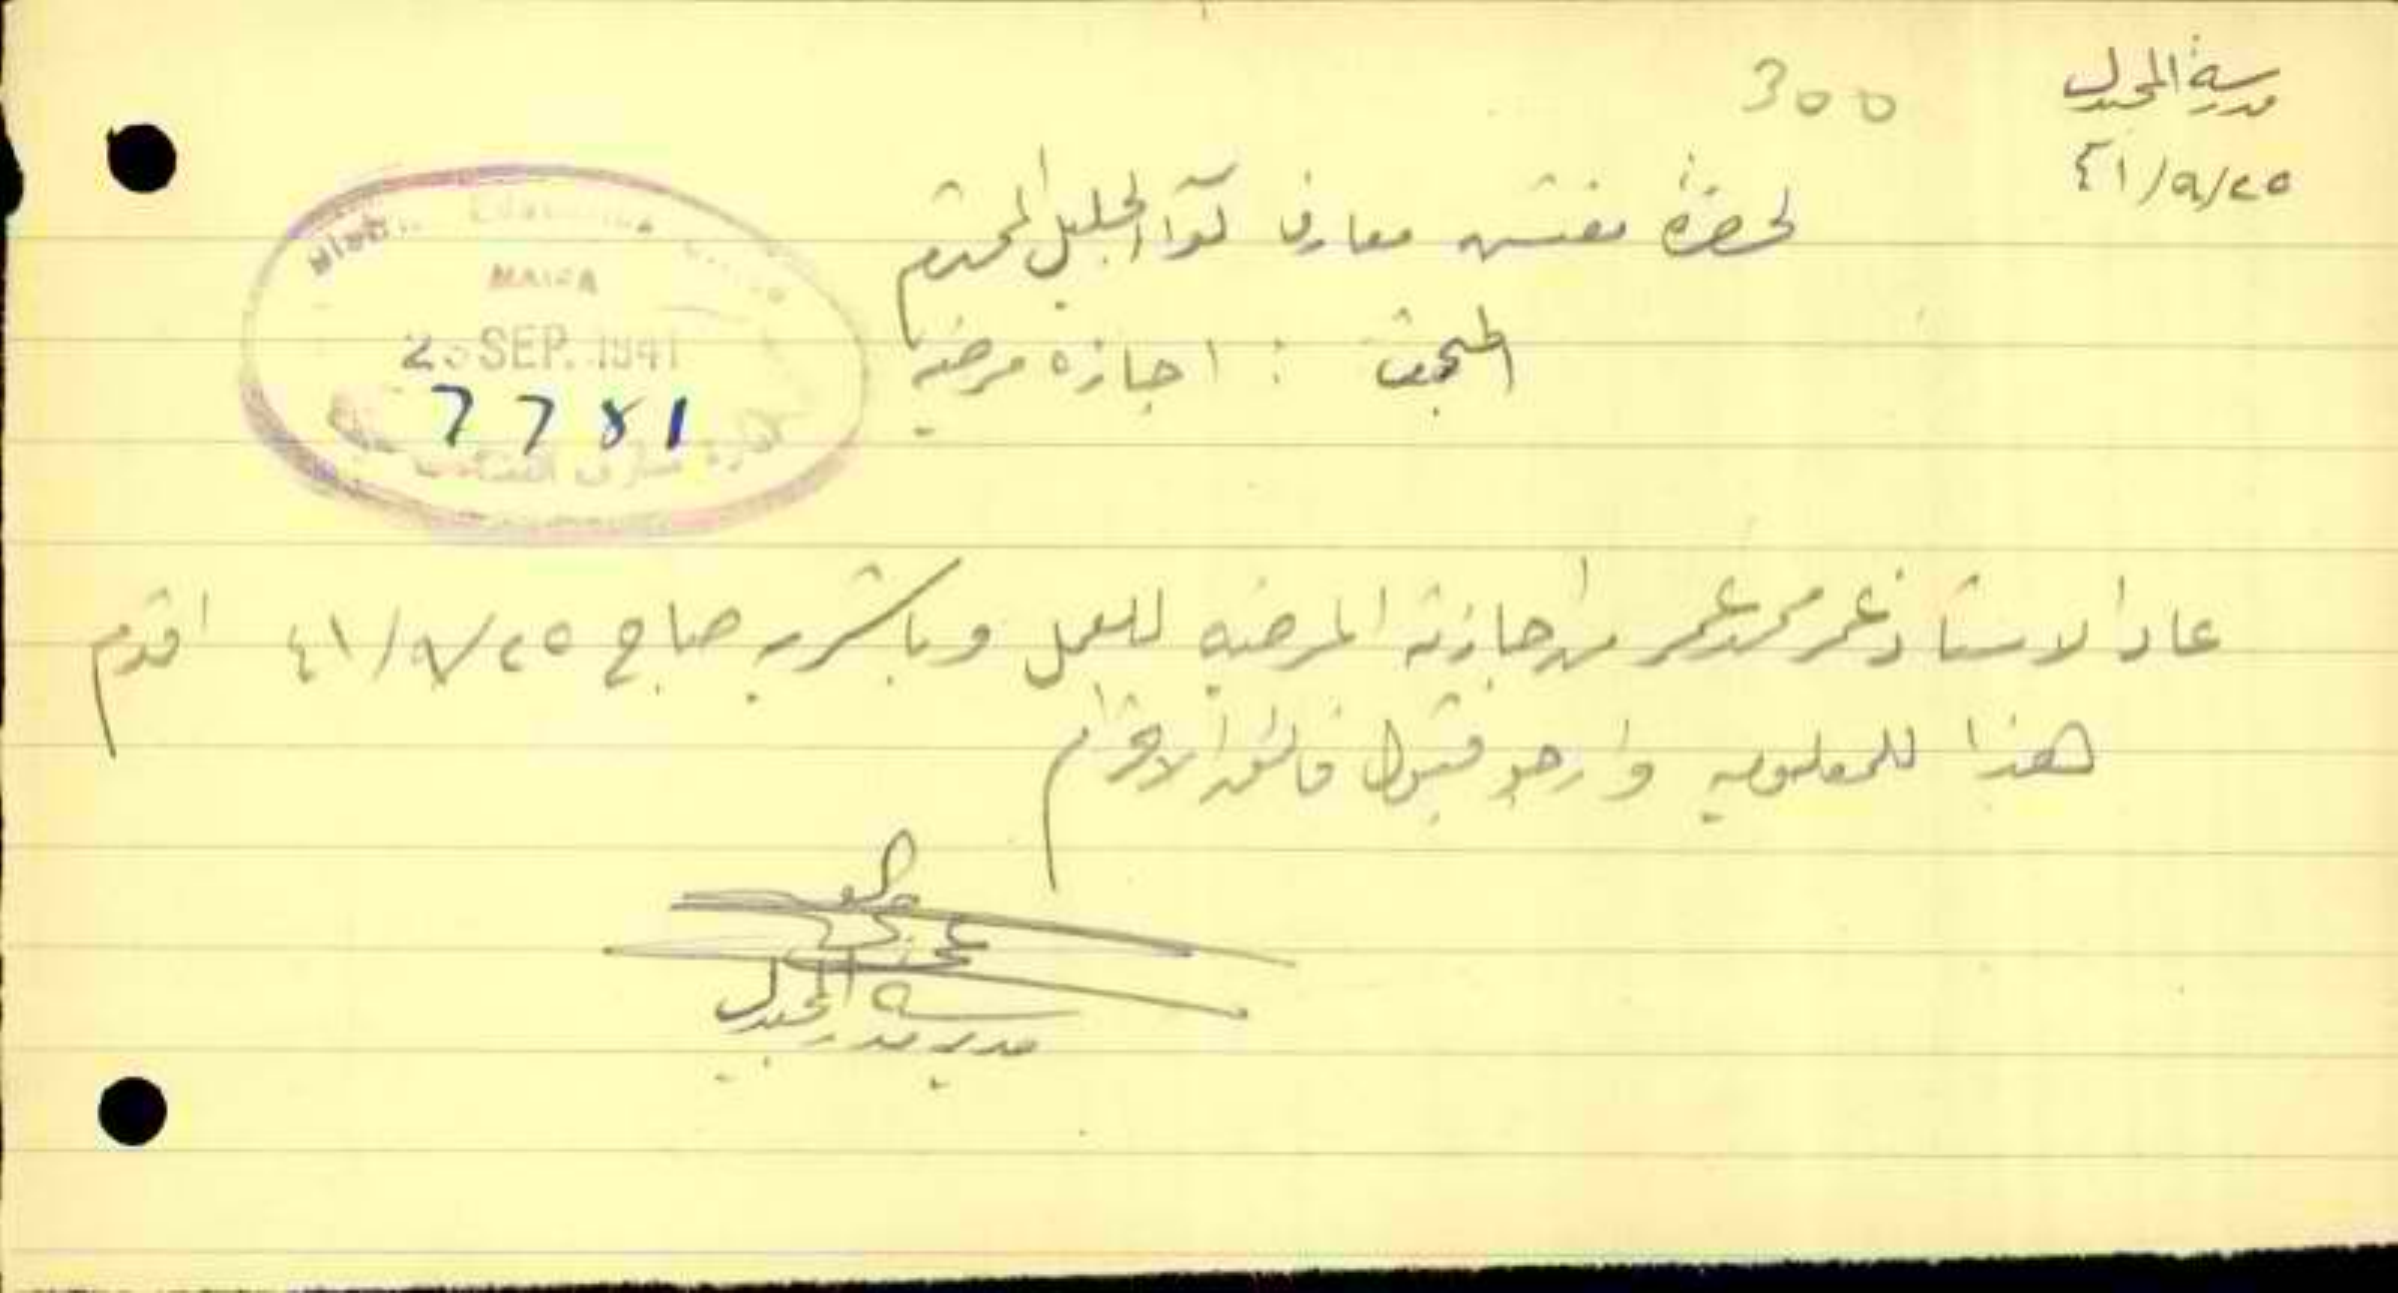 مدرسة المجيدل
300
٤١/٩/٢٥
لحضرة مفتش معارف لواء الجليل المحترم
المبحث : اجازه مرضيه
HAIFA
SEP. 1941
7781
عاد الاستاذ عمر محمد عمر من اجازته المرضيه للعمل وباشر به صباح ٤١/٩/٢٥ اقدم
هذا للمعلوميه وارجو قبول فائق الاحترام
مدير مدرسة المجيدل